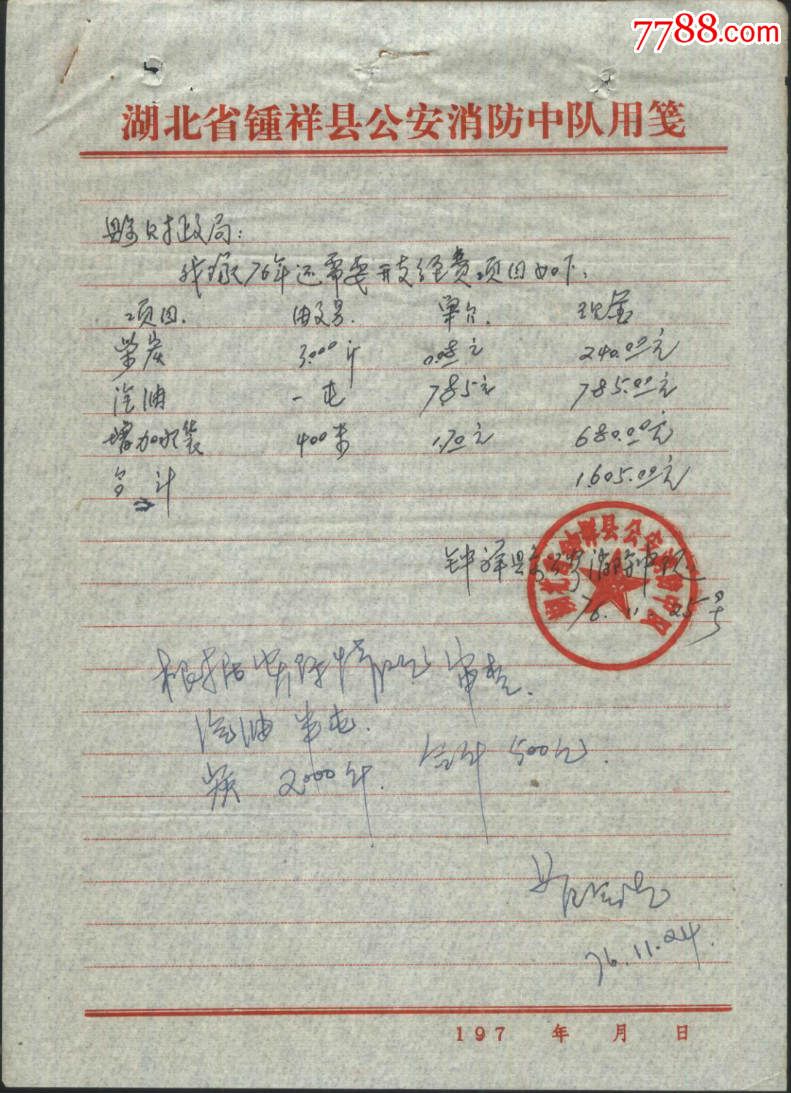 7788.com
湖北省锺祥县公安消防中队用笺
县财政局:
我队76年还需要开支经费项目如下:
项目. 单价. 现金
柴炭 3000斤 0.08元 240.00元
汽油 一吨 785元 785.00元
增加水袋 400米 1.70元 680.00元
合计 1.605.00元
钟祥县公安消防中队
76.11.25号
根据实际情况审核.
汽油半吨.
炭 2000斤. 合计 500元.
76.11.24.
197 年 月 日